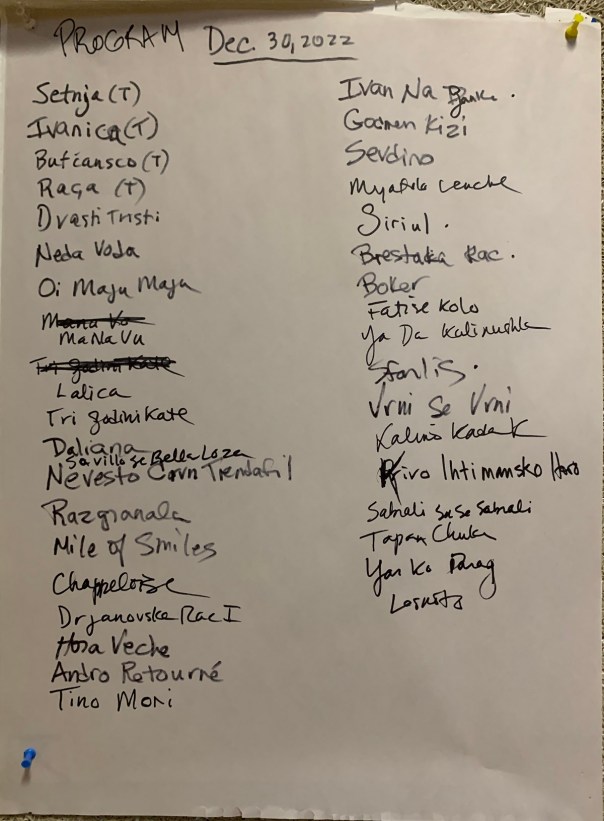 PROGRAM Dec. 30, 2022
Setnja (T)
Ivanica (T)
Bufcansco (T)
Raca (T)
Dvasti Tristi
Neda Voda
Oi Maju Maju
Mana Vu
MaNa Vu
Tri godini Kate
Lalica
Tri godini Kate
Daliana
Savillo se Bella Loza
Nevesto Crvn Trendafil
Razgranala
Mile of Smiles
Chappeloise
Drjanovska Rac I
Hora Veche
Andro Retourné
Tino Mori
Ivan Na
Godmen Kizi
Sevdino
Lenche
Siriul.
Brestaka Rac.
Boker
Fatise Kolo
Ya Da Kalinushka
Sfarlis.
Vrni Se Vrni
Kalino Kada K
Krivo Ihtimansko Horo
Sabrali Sa Se Sabrali
Tapan Chuka
Yanko